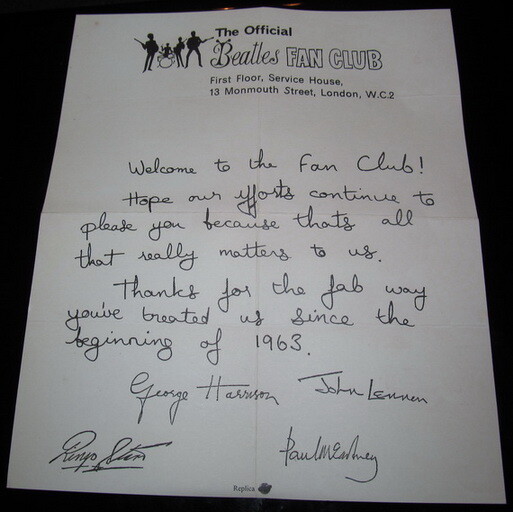 The Official
Beatles FAN CLUB
First Floor, Service House,
13 Monmouth Street, London, W.C.2
Welcome to the Fan Club!
Hope our efforts continue to
please you because thats all
that really matters to us.
Thanks for the fab way
you've treated us since the
beginning of 1963.
George Harrison John Lennon
Ringo Starr Paul McCartney
Replica